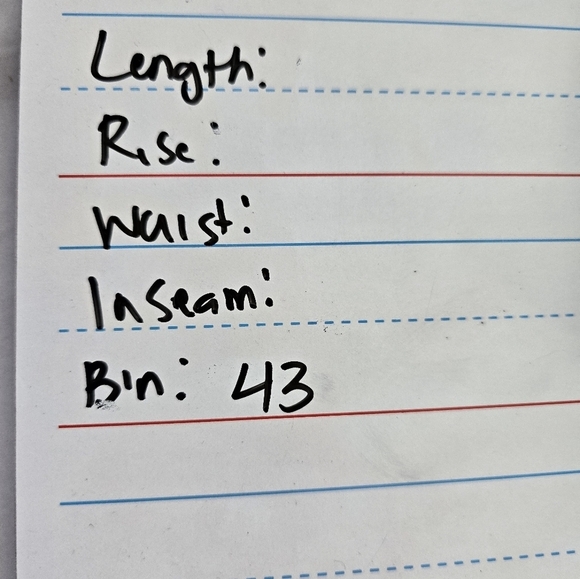 Length:
Rise:
Waist:
Inseam:
Bin: 43